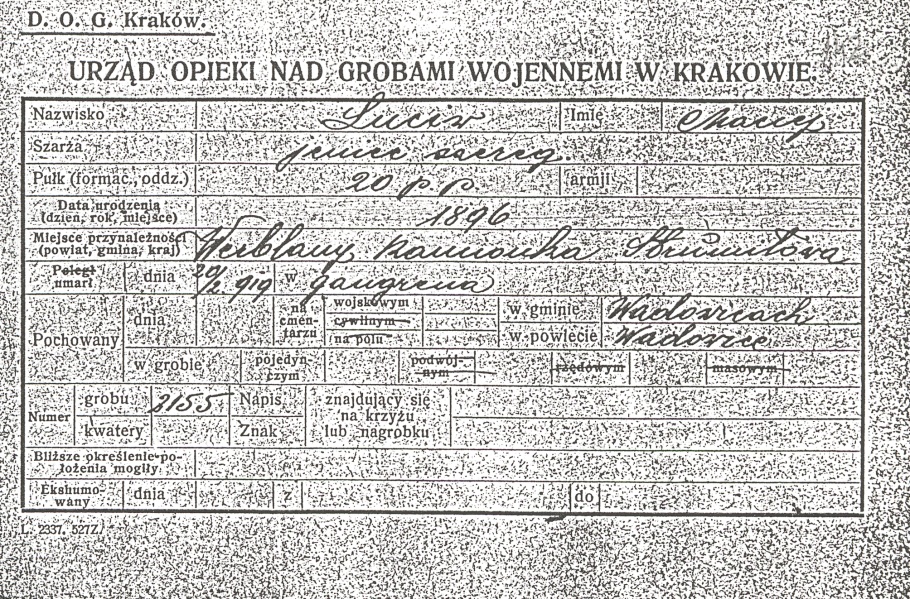 D. O. G. Kraków.
URZĄD OPIEKI NAD GROBAMI WOJENNEMI W KRAKOWIE.
Nazwisko Luciw Imię Maciej
Szarża jeniec szereg.
Pułk (formac., oddz.) 20 p p armji
Data urodzenia (dzień, rok, miejsce) 1896
Miejsce przynależności (powiat, gmina, kraj) Werblany Kamionka Strumiłowa
Poległ umarł dnia 20/2 919 w gangrena
Pochowany dnia na cmentarzu wojskowym cywilnym na polu w gminie Wadowicach
w powiecie Wadowice
w grobie pojedyńczym podwójnym rzędowym masowym
Numer grobu 2155 Napis znajdujący się na krzyżu lub nagrobku
kwatery Znak
Bliższe określenie położenia mogiły
Ekshumowany dnia z do
L. 2337. 527Z/